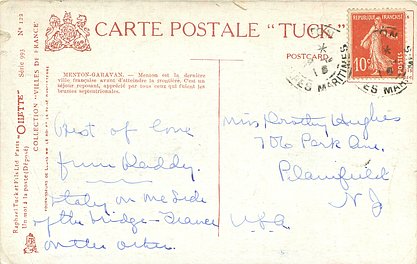 CARTE POSTALE "TUCK"
POSTCARD
MENTON-GARAVAN. — Menton est la dernière
ville française avant d'atteindre la frontière. C'est un
séjour reposant, apprécié par tous ceux qui fuient les
brumes septentrionales.
Best of love
from Daddy.
Italy on one side
of the bridge - France
on the other.
Miss Dorothy Hughes
706 Park Ave.
Plainfield
N J
U.S.A.
REPUBLIQUE FRANÇAISE
10c
ALPES MARITIMES
Nº 122
Série 993
COLLECTION "VILLES DE FRANCE"
"OILETTE"
Raphael Tuck et Fils Ltd Paris
Un mot à la poste (Déposé)